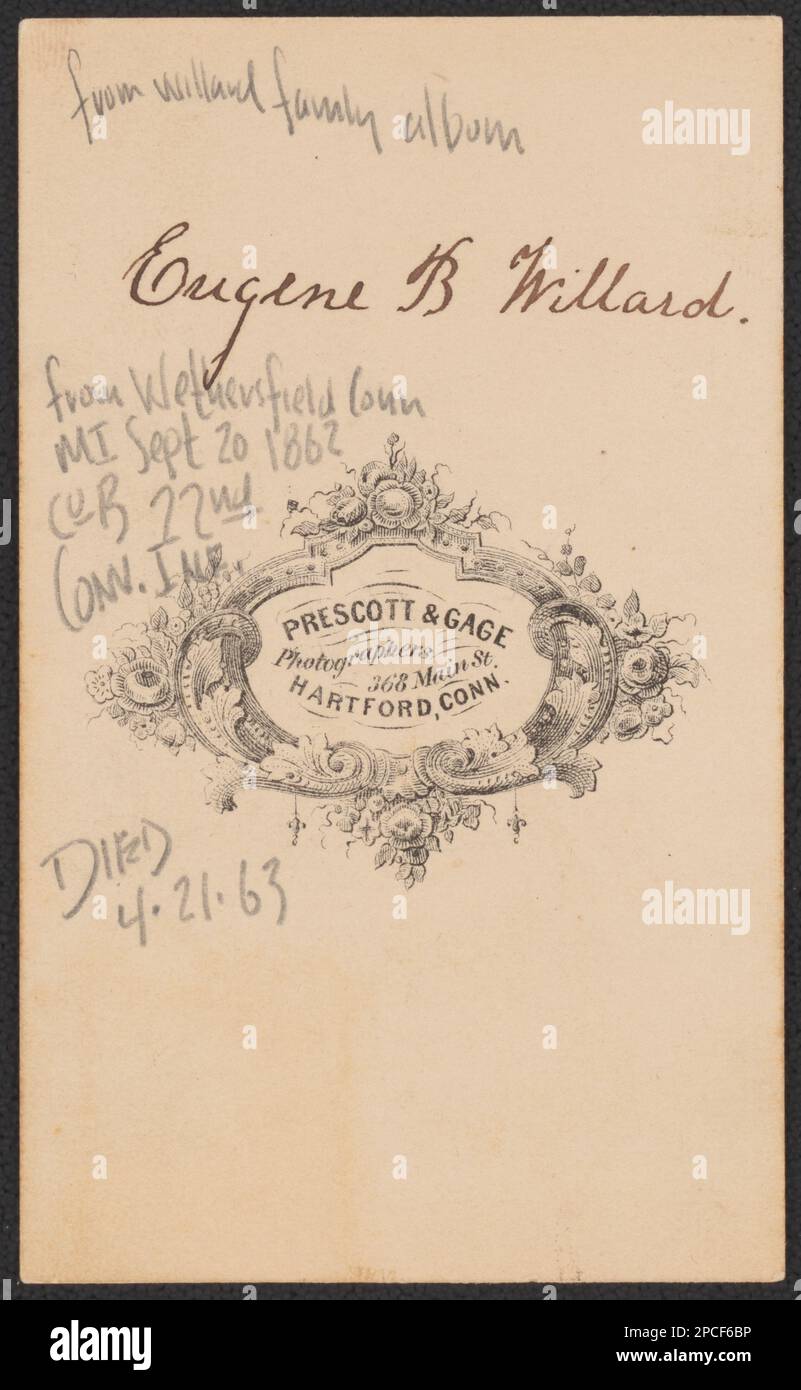 from Willard family album
Eugene B Willard.
from Wethersfield Conn
MI Sept 20 1862
Co B 22nd
Conn. Inf.
PRESCOTT & GAGE
Photographers
368 Main St.
HARTFORD, CONN.
DIED
4.21.63
alamy
alamy
alamy
Image ID: 2PCF6BP
www.alamy.com